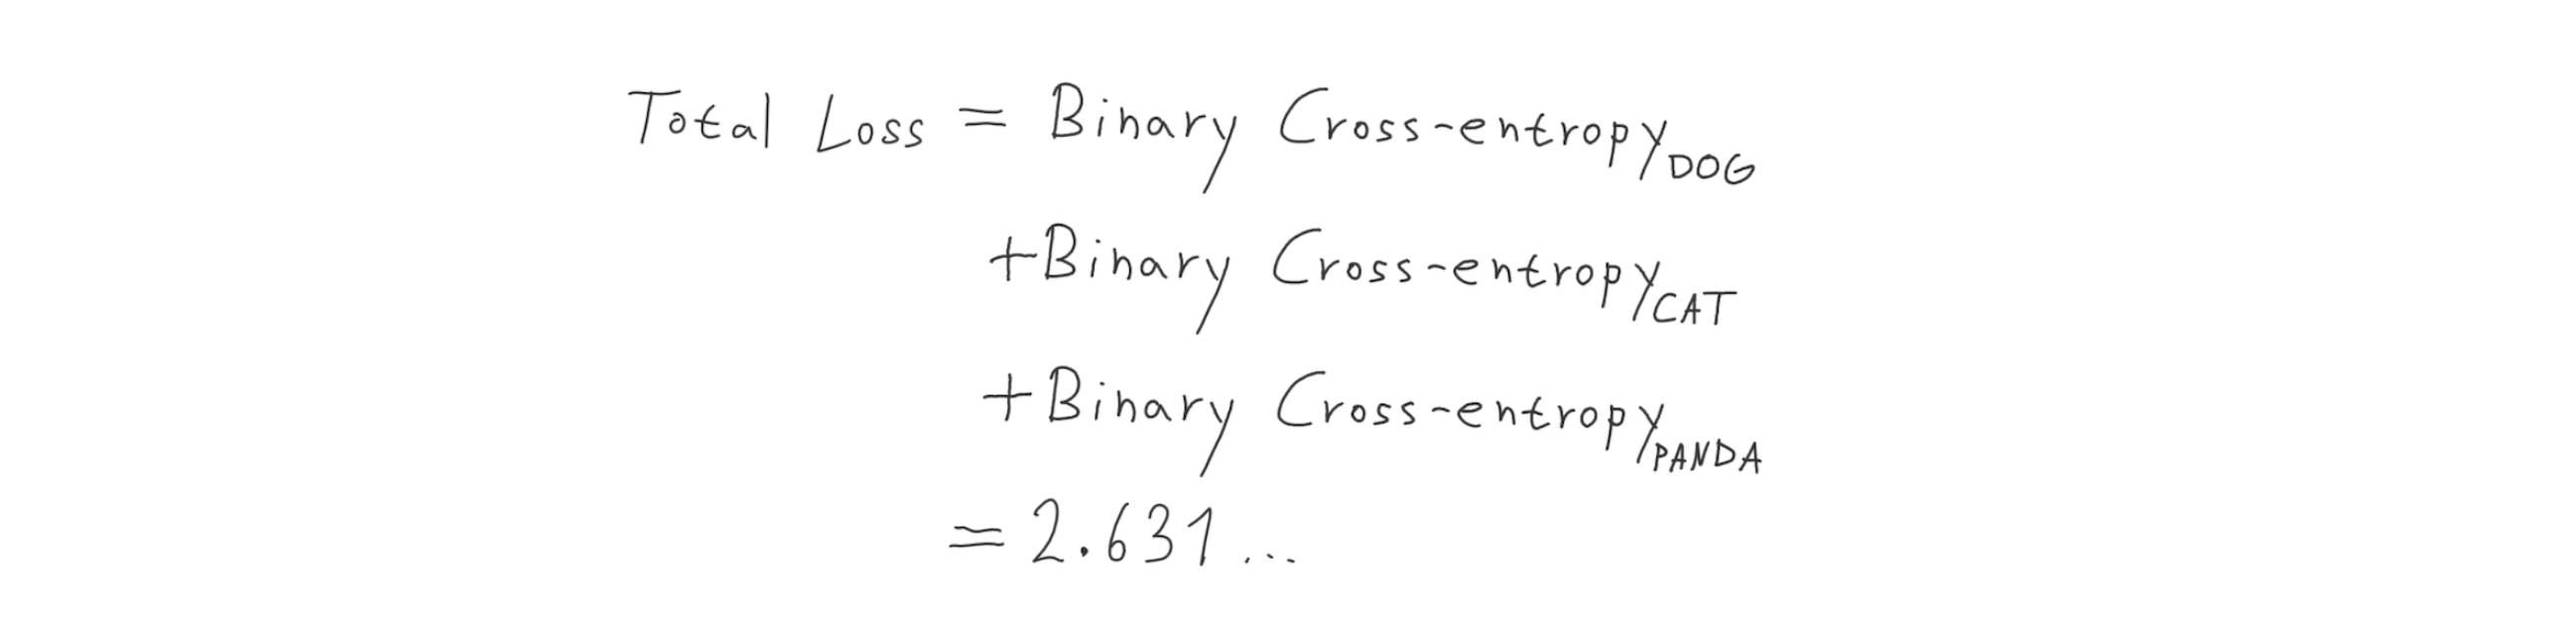 Total Loss = Binary Cross-entropy DOG
+Binary Cross-entropy CAT
+Binary Cross-entropy PANDA
= 2.631...